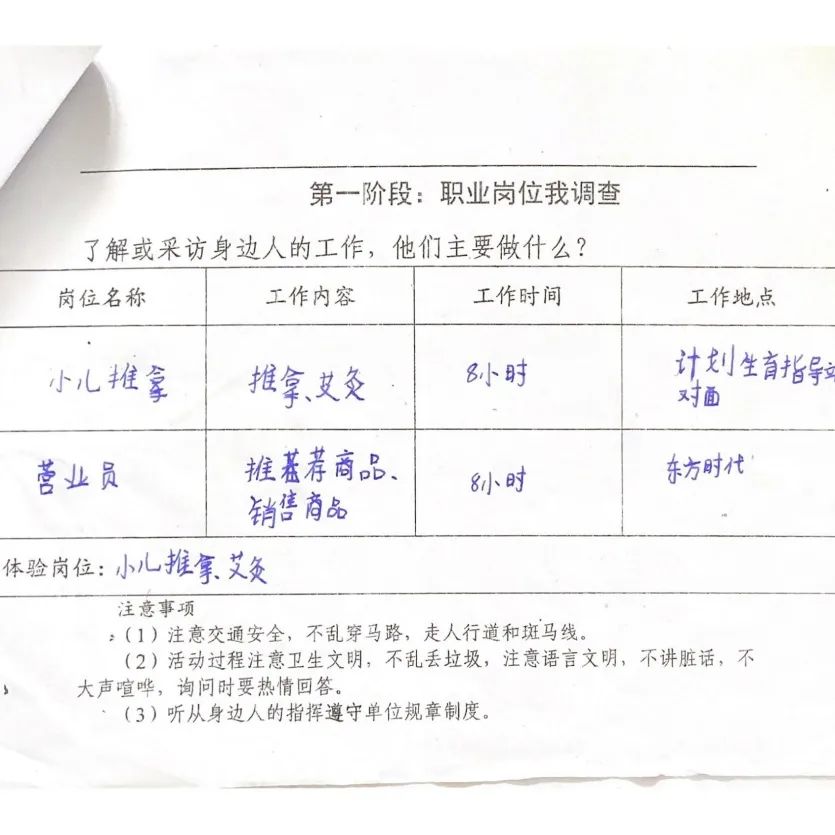 第一阶段：职业岗位我调查
了解或采访身边人的工作，他们主要做什么？
岗位名称 工作内容 工作时间 工作地点
小儿推拿 推拿、艾灸 8小时 计划生育指导站
对面
营业员 推荐商品、 8小时 东方时代
销售商品
体验岗位：小儿推拿、艾灸
注意事项
（1）注意交通安全，不乱穿马路，走人行道和斑马线。
（2）活动过程注意卫生文明，不乱丢垃圾，注意语言文明，不讲脏话，不
大声喧哗，询问时要热情回答。
（3）听从身边人的指挥遵守单位规章制度。